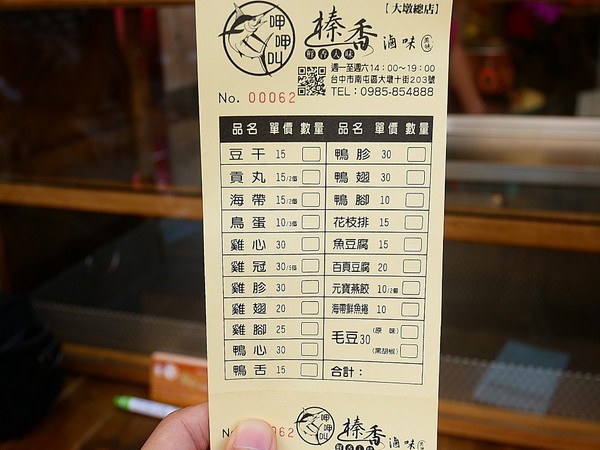 【大墩總店】
呷呷叫
榛香 滷味
週一至週六14:00～19:00
台中市南屯區大墩十街203號
TEL：0985-854888
No. 00062
品名 單價 數量 品名 單價 數量
豆干 15 鴨胗 30
貢丸 15/2個 鴨翅 30
海帶 15/2個 鴨腳 10
鳥蛋 10/3個 花枝排 15
雞心 30 魚豆腐 15
雞冠 30/5個 百頁豆腐 20
雞胗 30 元寶燕餃 10/2個
雞翅 20 海帶鮮魚捲 10
雞腳 25 毛豆30 (原味)
鴨心 30 (黑胡椒)
鴨舌 15 合計：
呷呷叫
榛香 滷味
62